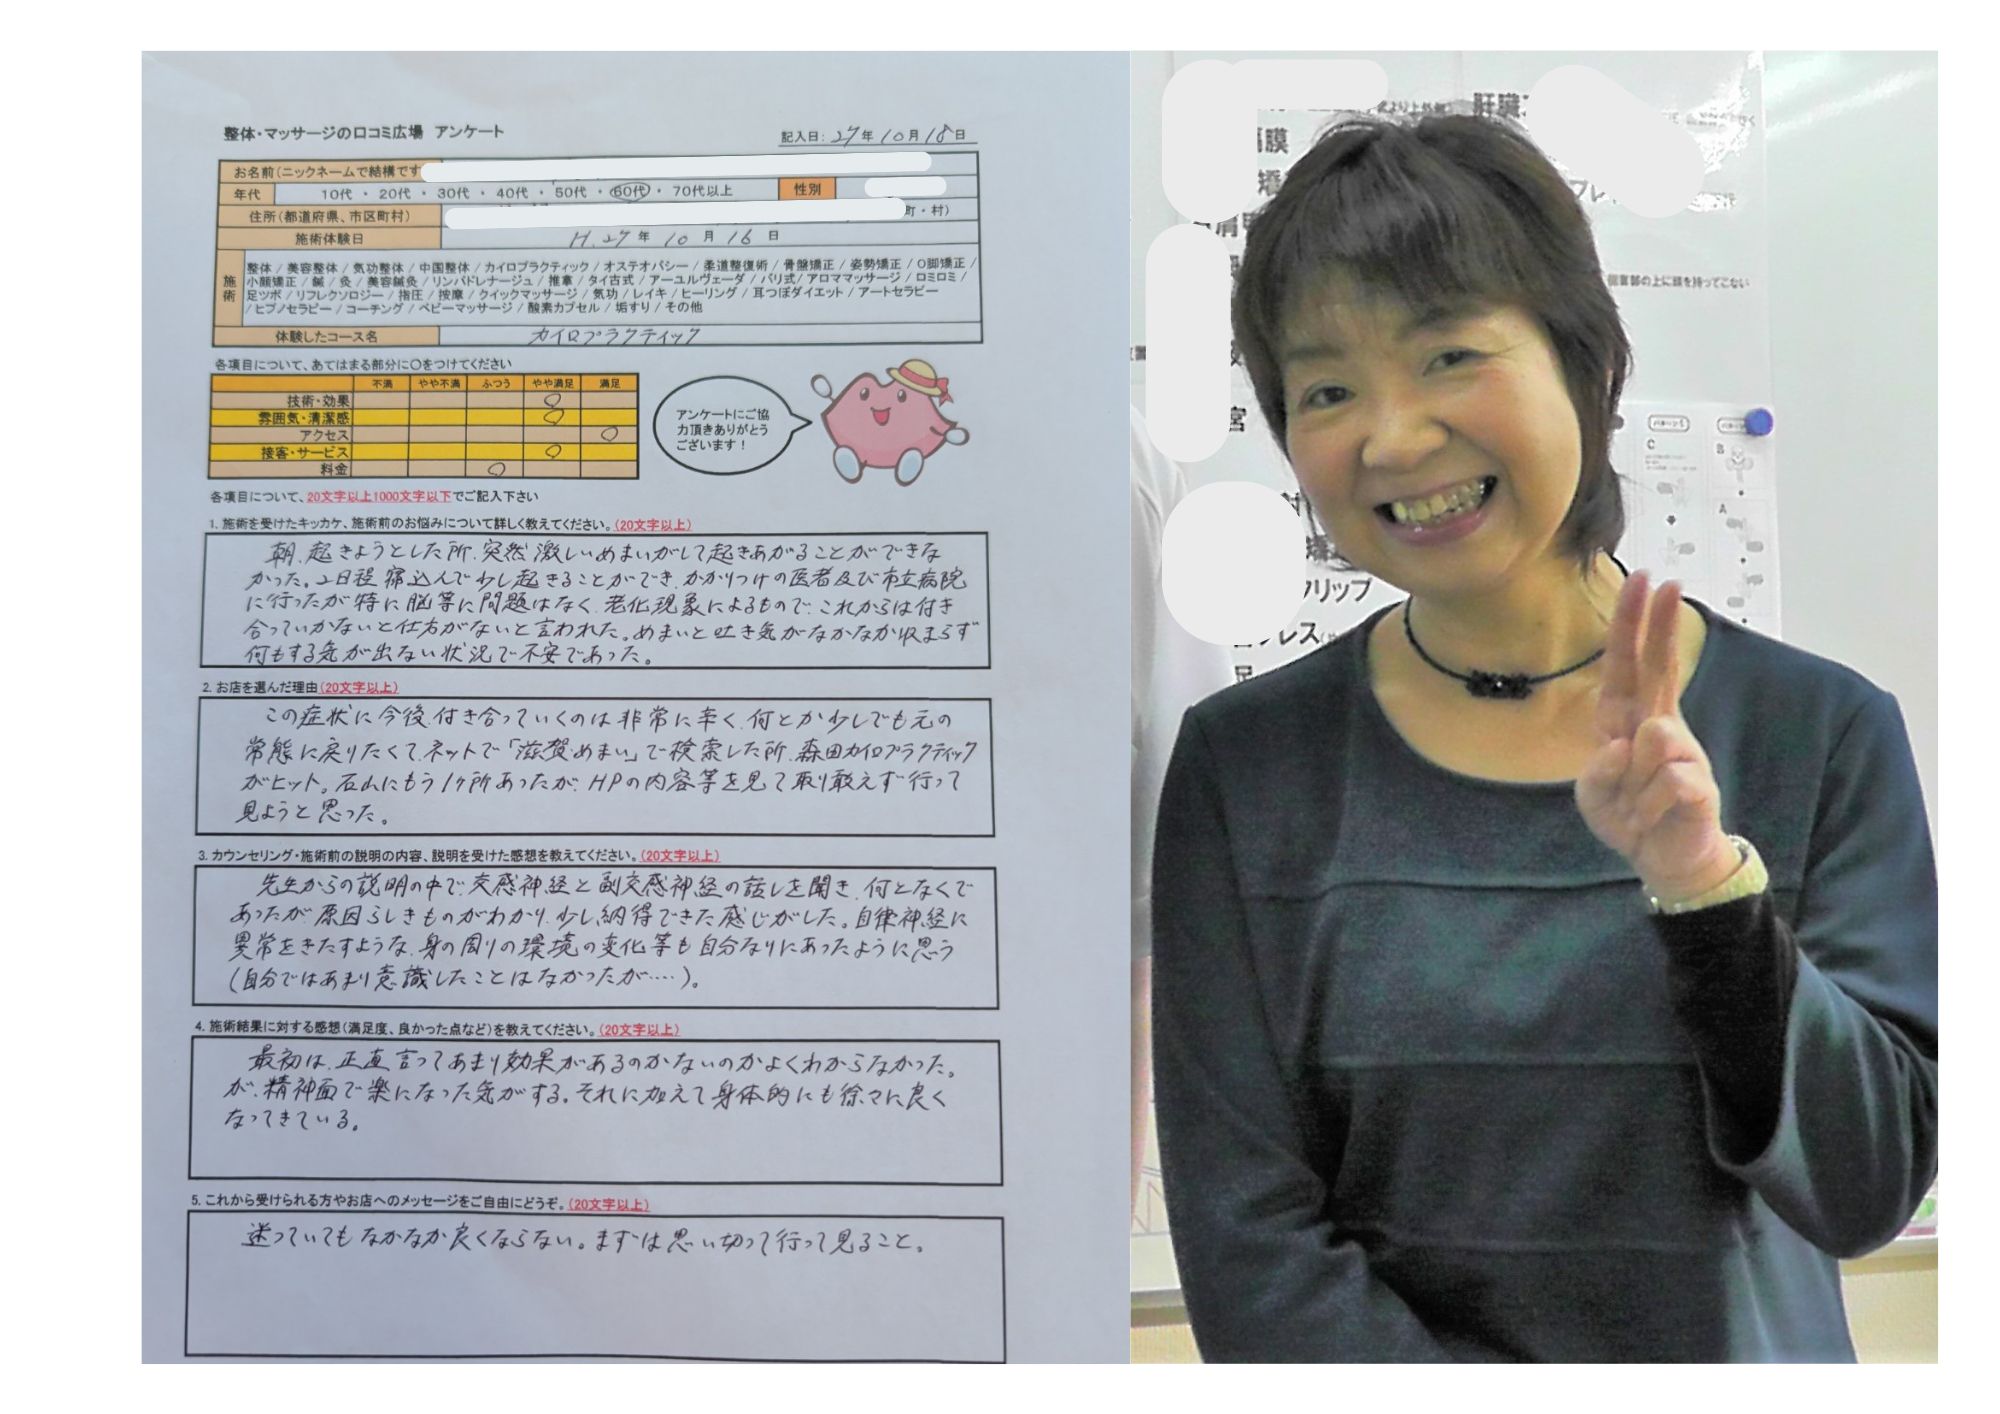 整体・マッサージの口コミ広場 アンケート
記入日: 27年10月18日
お名前(ニックネームで結構です
年代 10代 ・ 20代 ・ 30代 ・ 40代 ・ 50代 ・ 60代 ・ 70代以上 性別
住所(都道府県、市区町村) 町・村)
施術体験日 H.27年 10月 16日
施術
整体 / 美容整体 / 気功整体 / 中国整体 / カイロプラクティック / オステオパシー / 柔道整復術 / 骨盤矯正 / 姿勢矯正 / O脚矯正 /
小顔矯正 / 鍼 / 灸 / 美容鍼灸 / リンパドレナージュ / 推拿 / タイ古式 / アーユルヴェーダ / バリ式/ アロママッサージ / ロミロミ /
足ツボ / リフレクソロジー / 指圧 / 按摩 / クイックマッサージ / 気功 / レイキ / ヒーリング / 耳つぼダイエット / アートセラピー
/ ヒプノセラピー / コーチング / ベビーマッサージ / 酸素カプセル / 垢すり / その他
体験したコース名 カイロプラクティック
各項目について、あてはまる部分に○をつけてください
不満 やや不満 ふつう やや満足 満足
技術・効果 ○
雰囲気・清潔感 ○
アクセス ○
接客・サービス ○
料金 ○
アンケートにご協
力頂きありがとう
ございます!
各項目について、20文字以上1000文字以下でご記入下さい
1. 施術を受けたキッカケ、施術前のお悩みについて詳しく教えてください。(20文字以上)
朝、起きようとした所、突然激しいめまいがして起きあがることができな
かった。2日程寝込んで少し起きることができ、かかりつけの医者及び市立病院
に行ったが特に脳等に問題はなく、老化現象によるもので、これからは付き
合っていかないと仕方がないと言われた。めまいと吐き気がなかなか収まらず
何もする気が出ない状況で不安であった。
2. お店を選んだ理由(20文字以上)
この症状に今後、付き合っていくのは非常に辛く、何とか少しでも元の
常態に戻りたくて、ネットで「滋賀・めまい」で検索した所、森田カイロプラクティック
がヒット。石山にもう1ヶ所あったが、HPの内容等を見て取り敢えず行って
見ようと思った。
3. カウンセリング・施術前の説明の内容、説明を受けた感想を教えてください。(20文字以上)
先生からの説明の中で、交感神経と副交感神経の話しを聞き、何となくで
あったが、原因らしきものがわかり、少し納得できた感じがした。自律神経に
異常をきたすような、身の周りの環境の変化等も自分なりにあったように思う
(自分ではあまり意識したことはなかったが‥‥)。
4. 施術結果に対する感想(満足度、良かった点など)を教えてください。(20文字以上)
最初は、正直言ってあまり効果があるのかないのかよくわからなかった。
が、精神面で楽になった気がする。それに加えて身体的にも徐々に良く
なってきている。
5. これから受けられる方やお店へのメッセージをご自由にどうぞ。(20文字以上)
迷っていてもなかなか良くならない。まずは思い切って行って見ること。
より上外側
肝臓
膈膜
肩甲
個宣部の上に頭を持ってこない
宮
フリップ
プレス
足
C
B
A